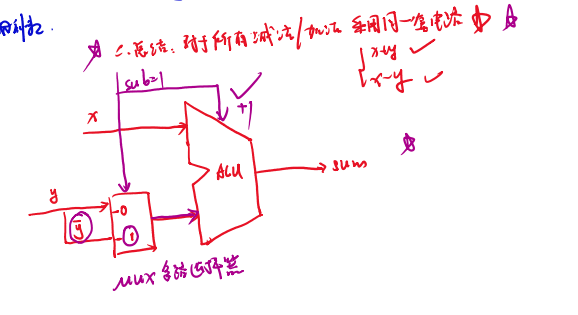 二.总结:对于所有减法/加法 采用同一套电路
x+y
x-y
sub=1
+1
x
ALU
sum
y
0
ȳ
1
mux 多路选择器